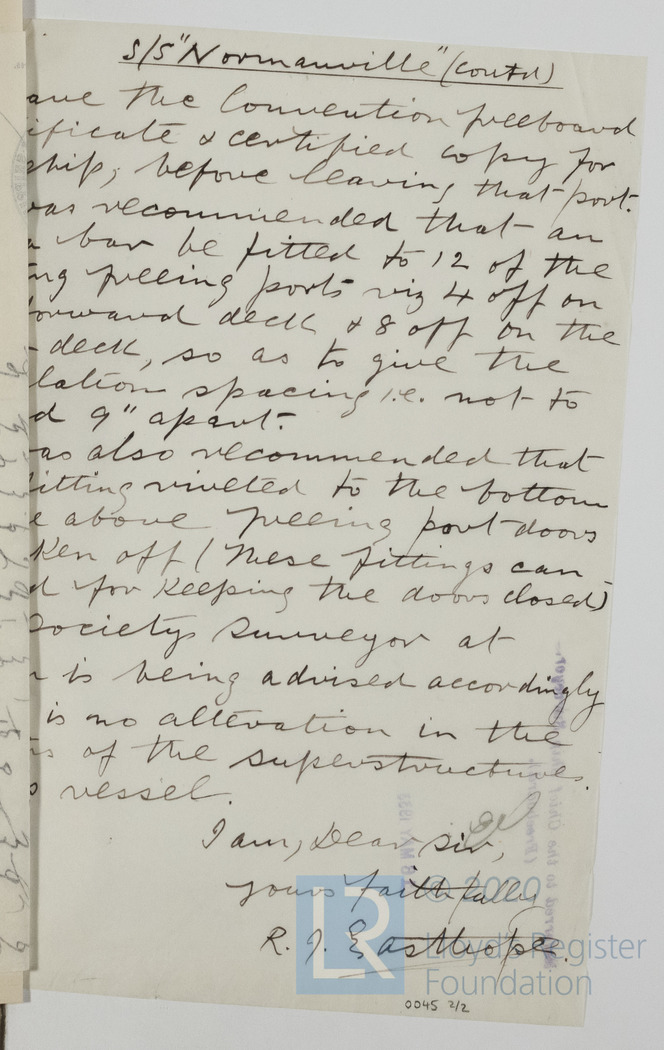 S/S "Normanville" (contd)
ave the Convention freeboard
ificate & certified copy for
ship, before leaving that port.
as recommended that an
a bar be fitted to 12 of the
ng freeing ports viz 4 off on
orward deck & 8 off on the
deck, so as to give the
lation spacing i.e. not to
d 9" apart.
as also recommended that
fitting riveted to the bottom
e above freeing port doors
ken off (These fittings can
d for keeping the doors closed)
Society's Surveyor at
n is being advised accordingly
is no alteration in the
ns of the superstructures
s vessel.
I am, Dear Sir,
yours faithfully
R. J. Easthope.
© 2020
LR
Lloyd's Register
Foundation
0045 2/2
MAY 1933
to the Chief
Surveyor.